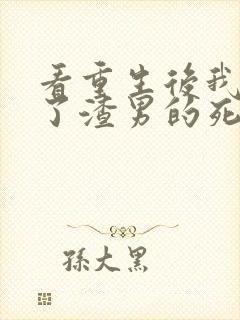 看重生後我
了渣男的死
孫大黑